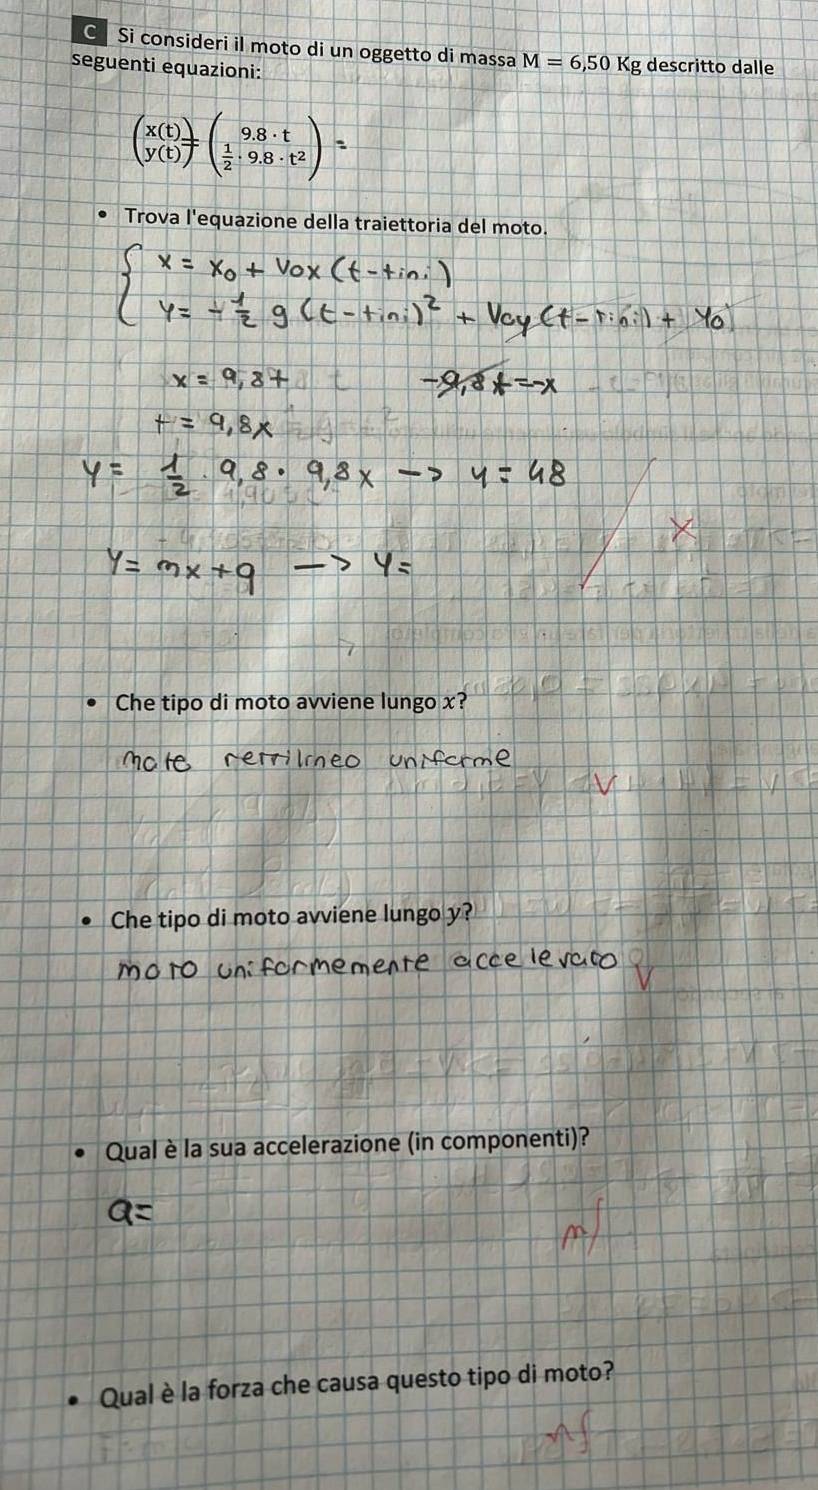 C Si consideri il moto di un oggetto di massa M = 6,50 Kg descritto dalle
seguenti equazioni:
(x(t) y(t)) = (9.8 · t 1/2 · 9.8 · t²) =
• Trova l'equazione della traiettoria del moto.
{ x = x0 + Vox (t - tini)
y = -1/2 g (t - tini)² + Voy (t - tini) + yo
x = 9,8t -9,8t = -x
t = 9,8x
y = 1/2 · 9,8 · 9,8x -> y = 48
X
y = mx + q -> y =
• Che tipo di moto avviene lungo x?
moto rettilineo uniforme
V
• Che tipo di moto avviene lungo y?
moto uniformemente accelerato
V
• Qual è la sua accelerazione (in componenti)?
a=
nf
• Qual è la forza che causa questo tipo di moto?
nf